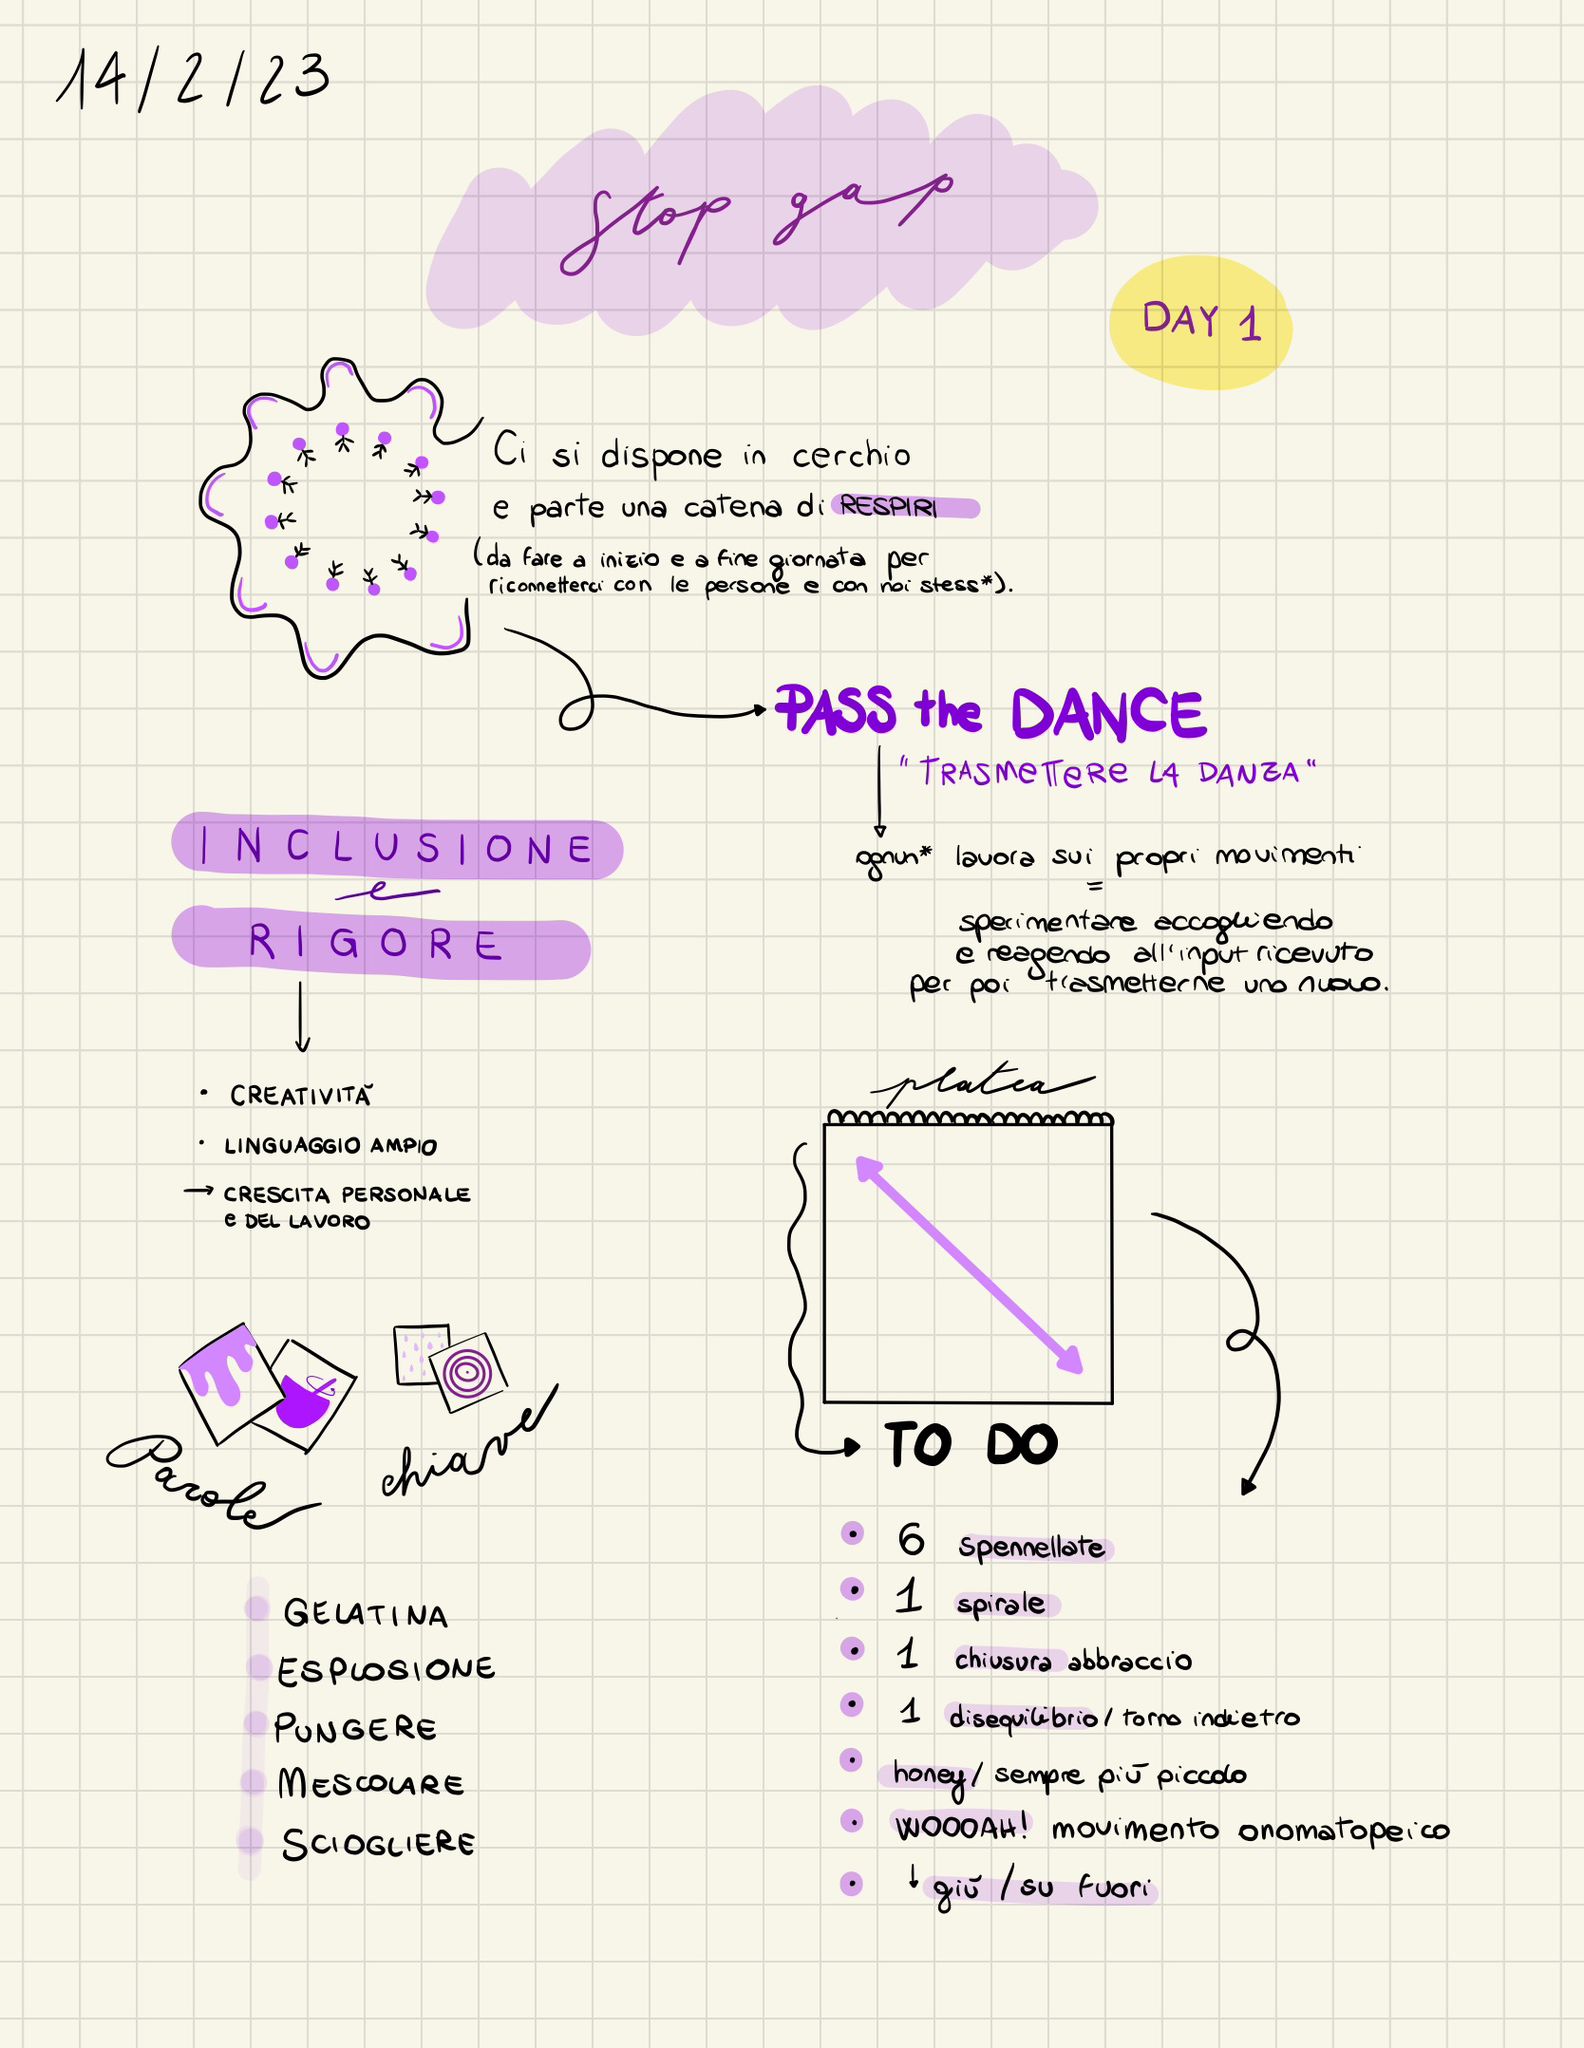 14/2/23
Stop gap
DAY 1
Ci si dispone in cerchio
e parte una catena di RESPIRI
(da fare a inizio e a fine giornata per
riconnetterci con le persone e con noi stess*).
PASS the DANCE
"TRASMETTERE LA DANZA"
ognun* lavora sui propri movimenti
=
sperimentare accogliendo
e reagendo all'input ricevuto
per poi trasmetterne uno nuovo.
INCLUSIONE
e
RIGORE
• CREATIVITÀ
• LINGUAGGIO AMPIO
→ CRESCITA PERSONALE
e DEL LAVORO
platea
TO DO
Parole chiave
GELATINA
ESPLOSIONE
PUNGERE
MESCOLARE
SCIOGLIERE
• 6 spennellate
• 1 spirale
• 1 chiusura abbraccio
• 1 disequilibrio / torno indietro
• honey / sempre più piccolo
• WOOOAH! movimento onomatopeico
• ↓ giù / su fuori